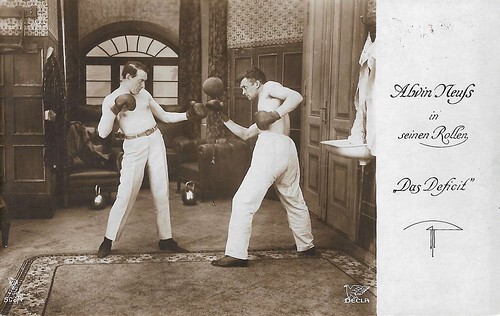 Alwin Neuß
in
seinen Rollen
„Das Deficit"
DECLA